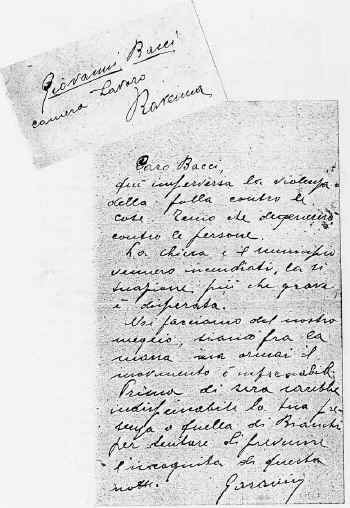 Giovanni Bacci
camera Lavoro
Ravenna
Caro Bacci,
qui imperversa la violenza
della folla contro le
cose. Temo che degeneri
contro le persone.
La chiesa e il municipio
vennero incendiati, la si
tuazione più che grave
è disperata.
Noi facciamo del nostro
meglio, siamo fra la
massa ma ormai il
movimento è infrenabile
Prima di sera sarebbe
indispensabile la tua pre
senza o quella di Bianchi
per tentare di prevenire
l'incognita di questa
notte.